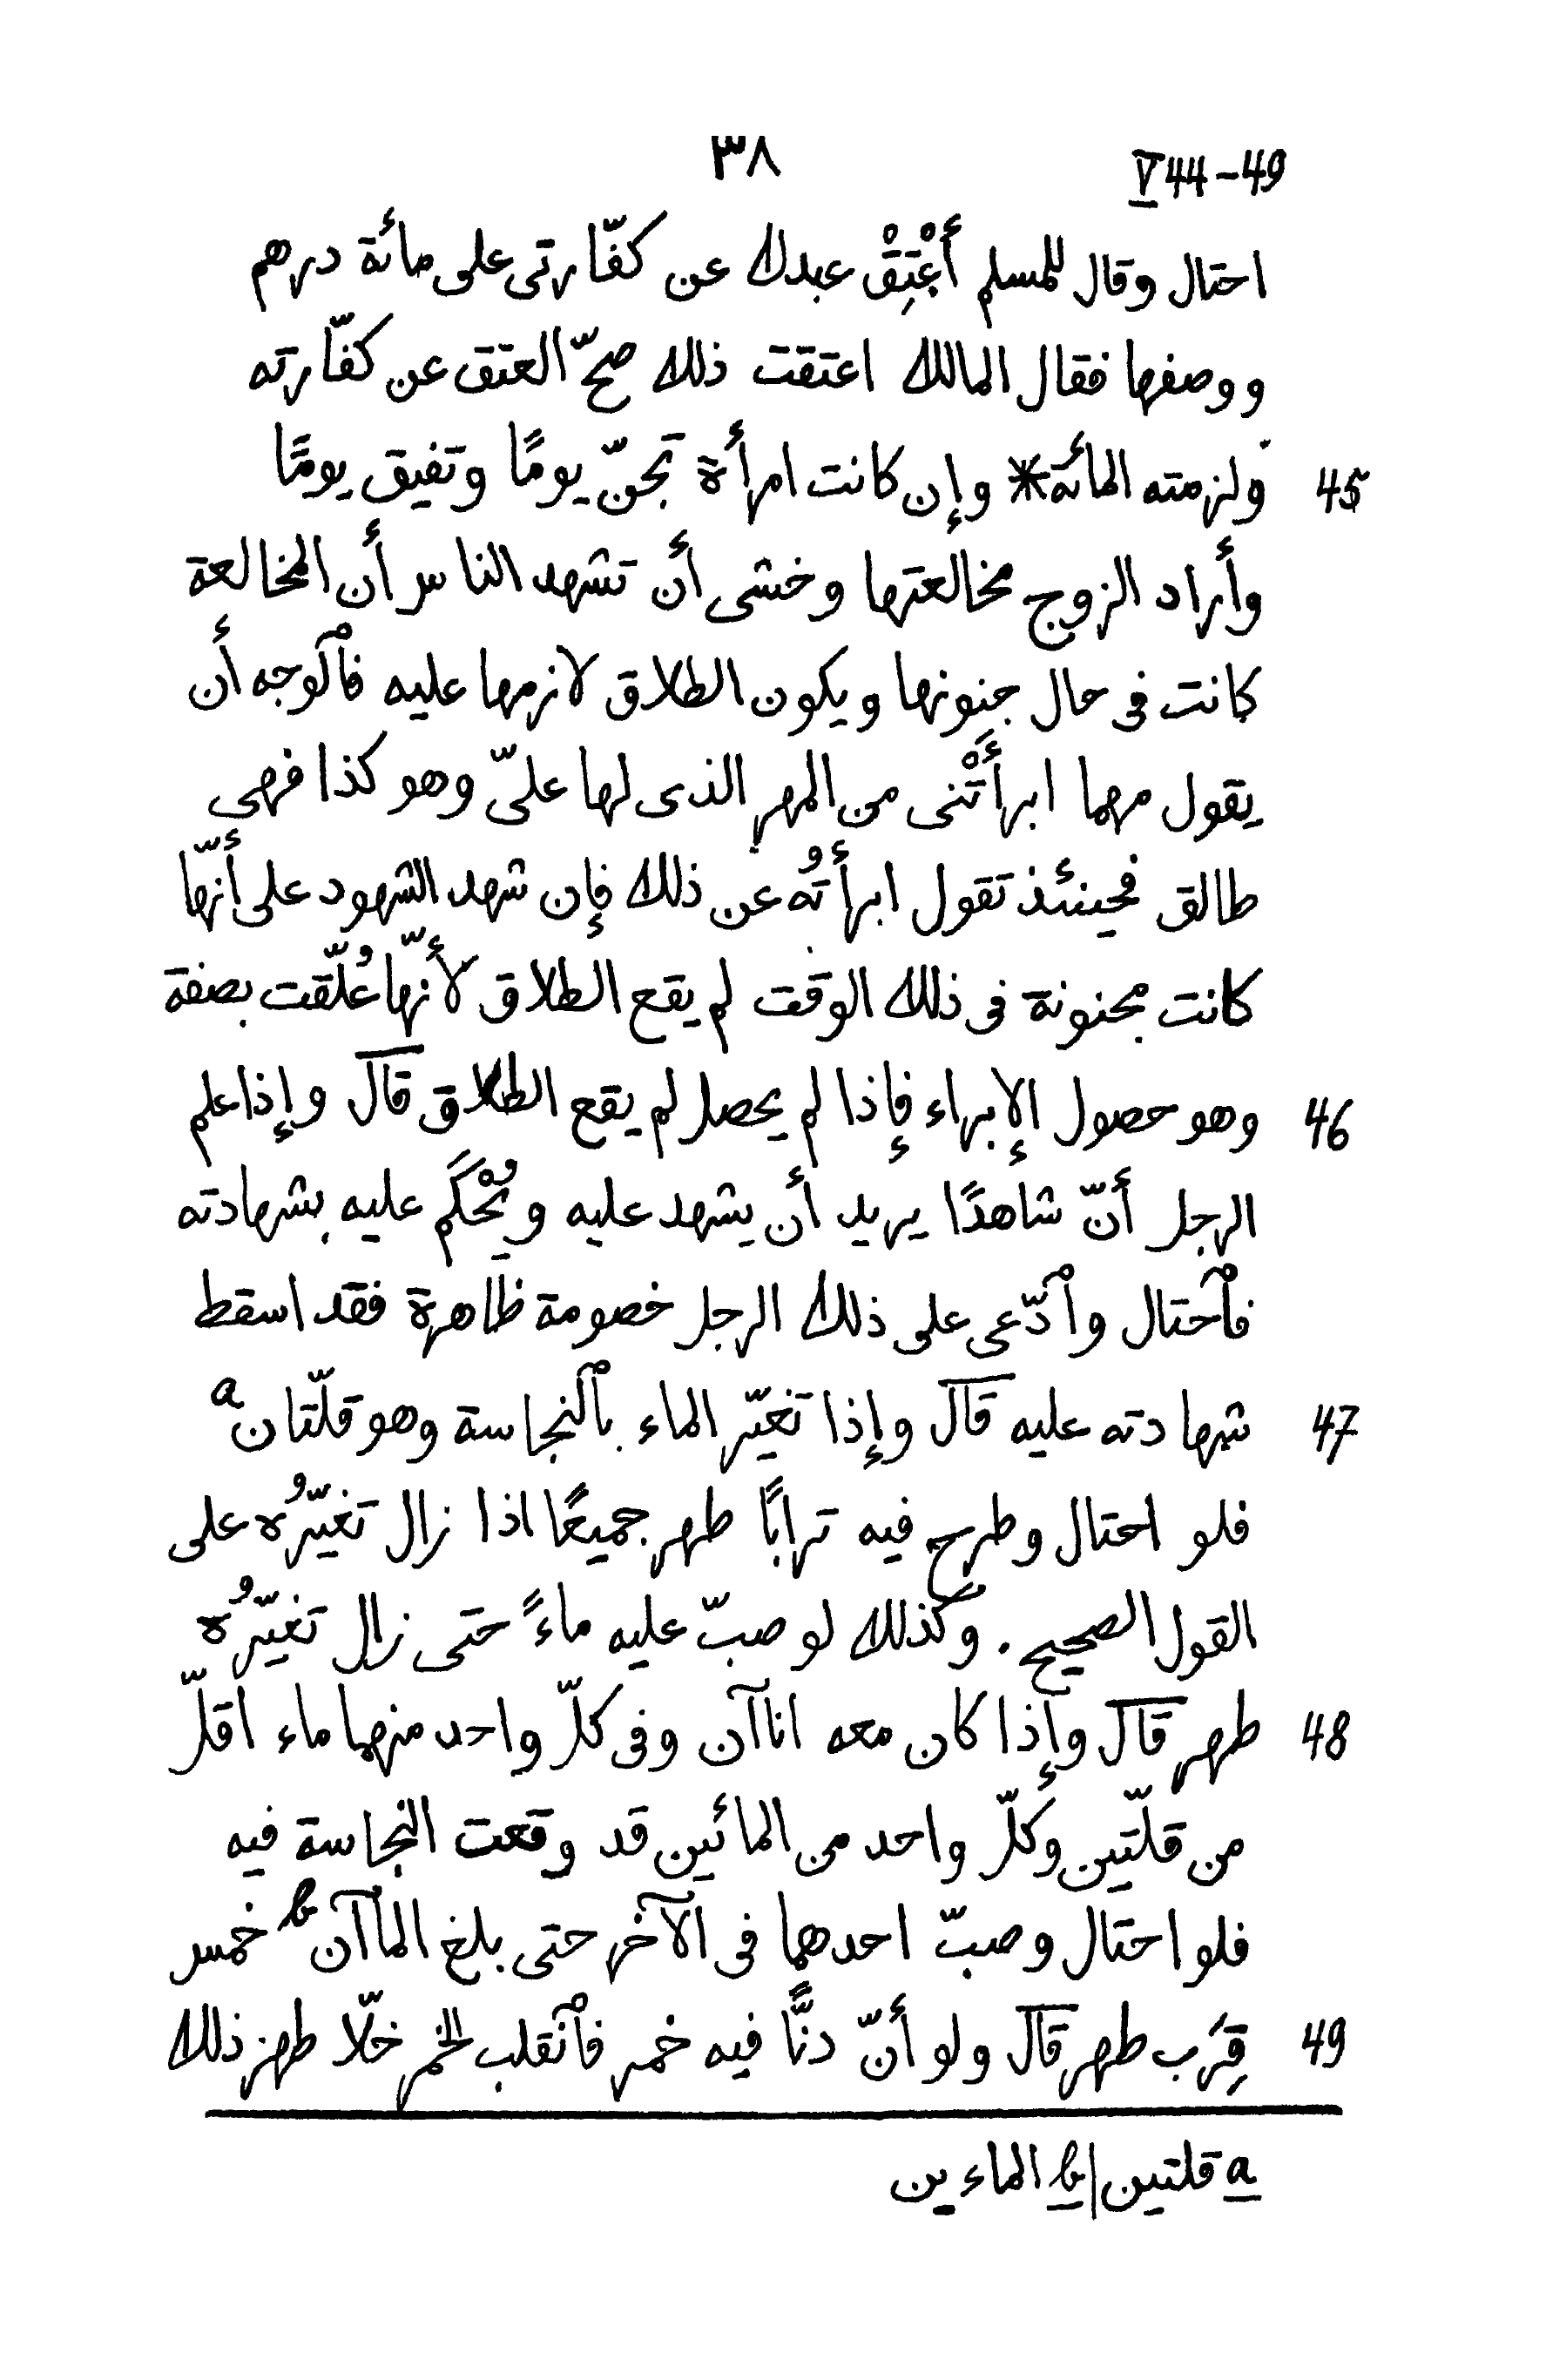 ٣٨ V 44-49
احتال وقال للمسلم أَعْتِقْ عبدك عن كفّارتى على مائة درهم
ووصفها فقال المالك اعتقت ذلك صحّ العتق عن كفّارته
45 ولزمته المائة* وإن كانت امرأة تجنّ يومًا وتفيق يومًا
وأراد الزوج مخالعتها وخشى أن تشهد الناس أن المخالعة
كانت فى حال جنونها ويكون الطلاق لازمها عليه فٱلوجه أن
يقول مهما ابرأَتْنى من المهر الذى لها علىّ وهو كذا فهى
طالق فحينئذ تقول ابرأتُه عن ذلك فإن شهد الشهود على أنّها
كانت مجنونة فى ذلك الوقت لم يقع الطلاق لأنّها عُلّقت بصفة
46 وهو حصول الإبراء فإذا لم يحصل لم يقع الطلاق قال وإذا علم
الرجل أنّ شاهدًا يريد أن يشهد عليه ويُحْكَم عليه بشهادته
فٱحتال وٱدّعى على ذلك الرجل خصومة ظاهرة فقد اسقط
47 شهادته عليه قال وإذا تغيّر الماء بٱلنجاسة وهو قلّتان a
فلو احتال وطرح فيه ترابًا طهر جميعًا اذا زال تغيّرُه على
القول الصحيح. وكذلك لو صبّ عليه ماءً حتى زال تغيّرُه
48 طهر قال وإذا كان معه اناآن وفى كلّ واحد منهما ماء اقلّ
من قلّتين وكلّ واحد من المائين قد وقعت النجاسة فيه
فلو احتال وصبّ احدهما فى الآخر حتى بلغ الماآن b خمس
49 قِرَب طهر قال ولو أنّ دنًّا فيه خمر فٱنقلب الخمر خلّا طهر ذلك
a قلتين | b الماءين